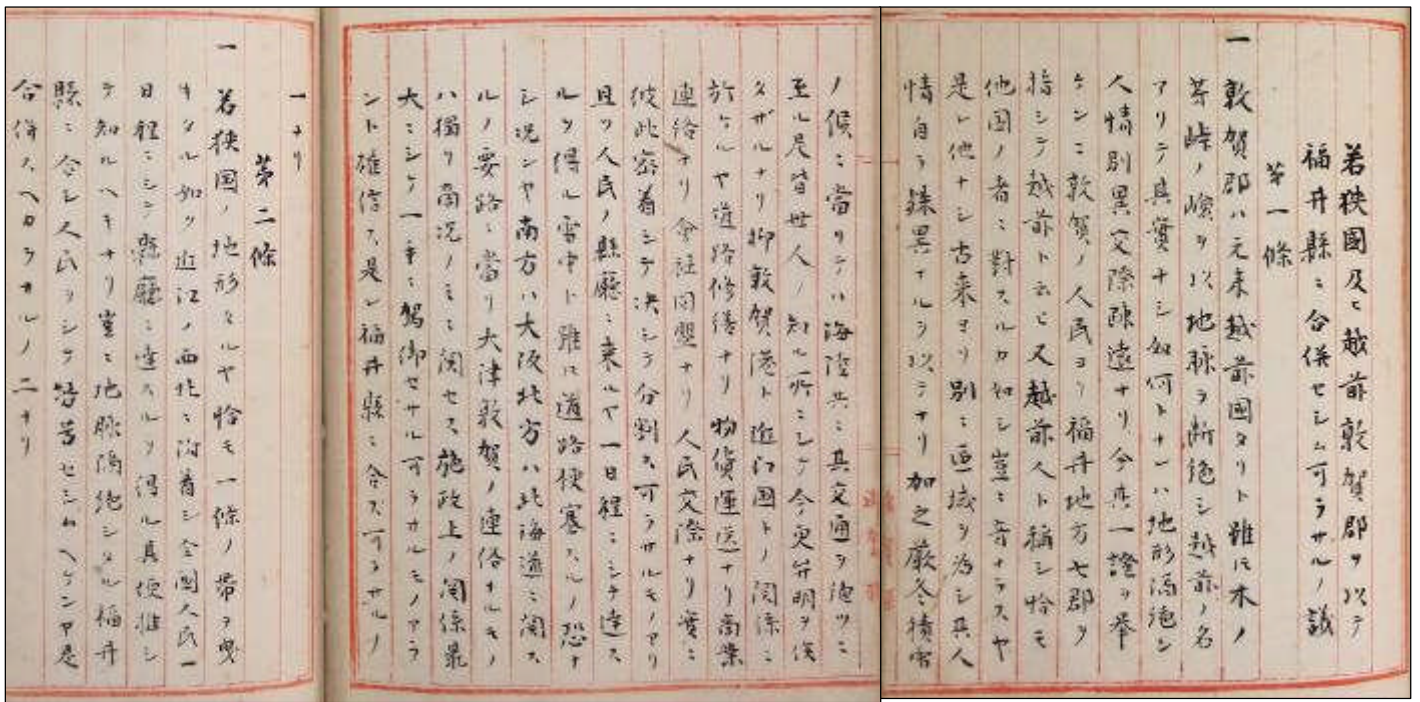 若狭國及ヒ越前敦賀郡ヲ以テ
福井縣ニ合併セシム可ラサルノ議
第一條
一敦賀郡ハ元来越前國タリト雖𪜈木ノ
芽峠ノ嶮ヲ以地脈ヲ断絶シ越前ノ名
アリテ其實ナシ如何トナレハ地形隔絶シ
人情別異交際疎遠ナリ今其一證ヲ挙
ケンニ敦賀ノ人民ヨリ福井地方七郡ヲ
指シテ越前ト云ヒ又越前人ト稱シ恰モ
他国ノ者ニ對スルカ如シ豈ニ音ナラスヤ
是レ他ナシ古来ヨリ別ニ區域ヲ為シ其人
情自ラ殊異ナルヲ以テナリ加之厳冬積雪
ノ候ニ當リテハ海陸共ニ其交通ヲ絶ツニ
至ル是皆世人ノ知ル所ニシテ今更弁明ヲ俟
タザルナリ抑敦賀港ト近江国トノ関係ニ
於ケルヤ道路修繕ナリ物貨運送ナリ商業
連絡ナリ会社同盟ナリ人民交際ナリ實ニ
彼此密着シテ決シテ分割ス可ラサルモノアリ
且ツ人民ノ縣廳ニ来ルヤ一日程ニシテ達ス
ルヲ得ル雪中ト雖𪜈道路梗塞スルノ恐ナ
シ况ンヤ南方ハ大阪北方ハ北海道ニ関ス
ルノ要路ニ當リ大津敦賀ノ連絡ナルモノ
ハ獨リ商况ノミニ関セス施政上ノ関係最
大ニシテ一手ニ駕御セサル可ラサルモノアラ
ント確信ス是レ福井縣ニ合ス可ラサルノ
一ナリ
第二條
一若狭国ノ地形タルヤ恰モ一條ノ帯ヲ曳
キタル如ク近江ノ西北ニ附着シ全國人民一
日程ニシテ縣廳ニ達スルヲ得ル其便推シ
テ知ルヘキナリ豈ニ地脈隔絶シタル福井
縣ニ合シ人民ヲシテ労苦セシムヘケンヤ是
合併スヘカラサルノ二ナリ